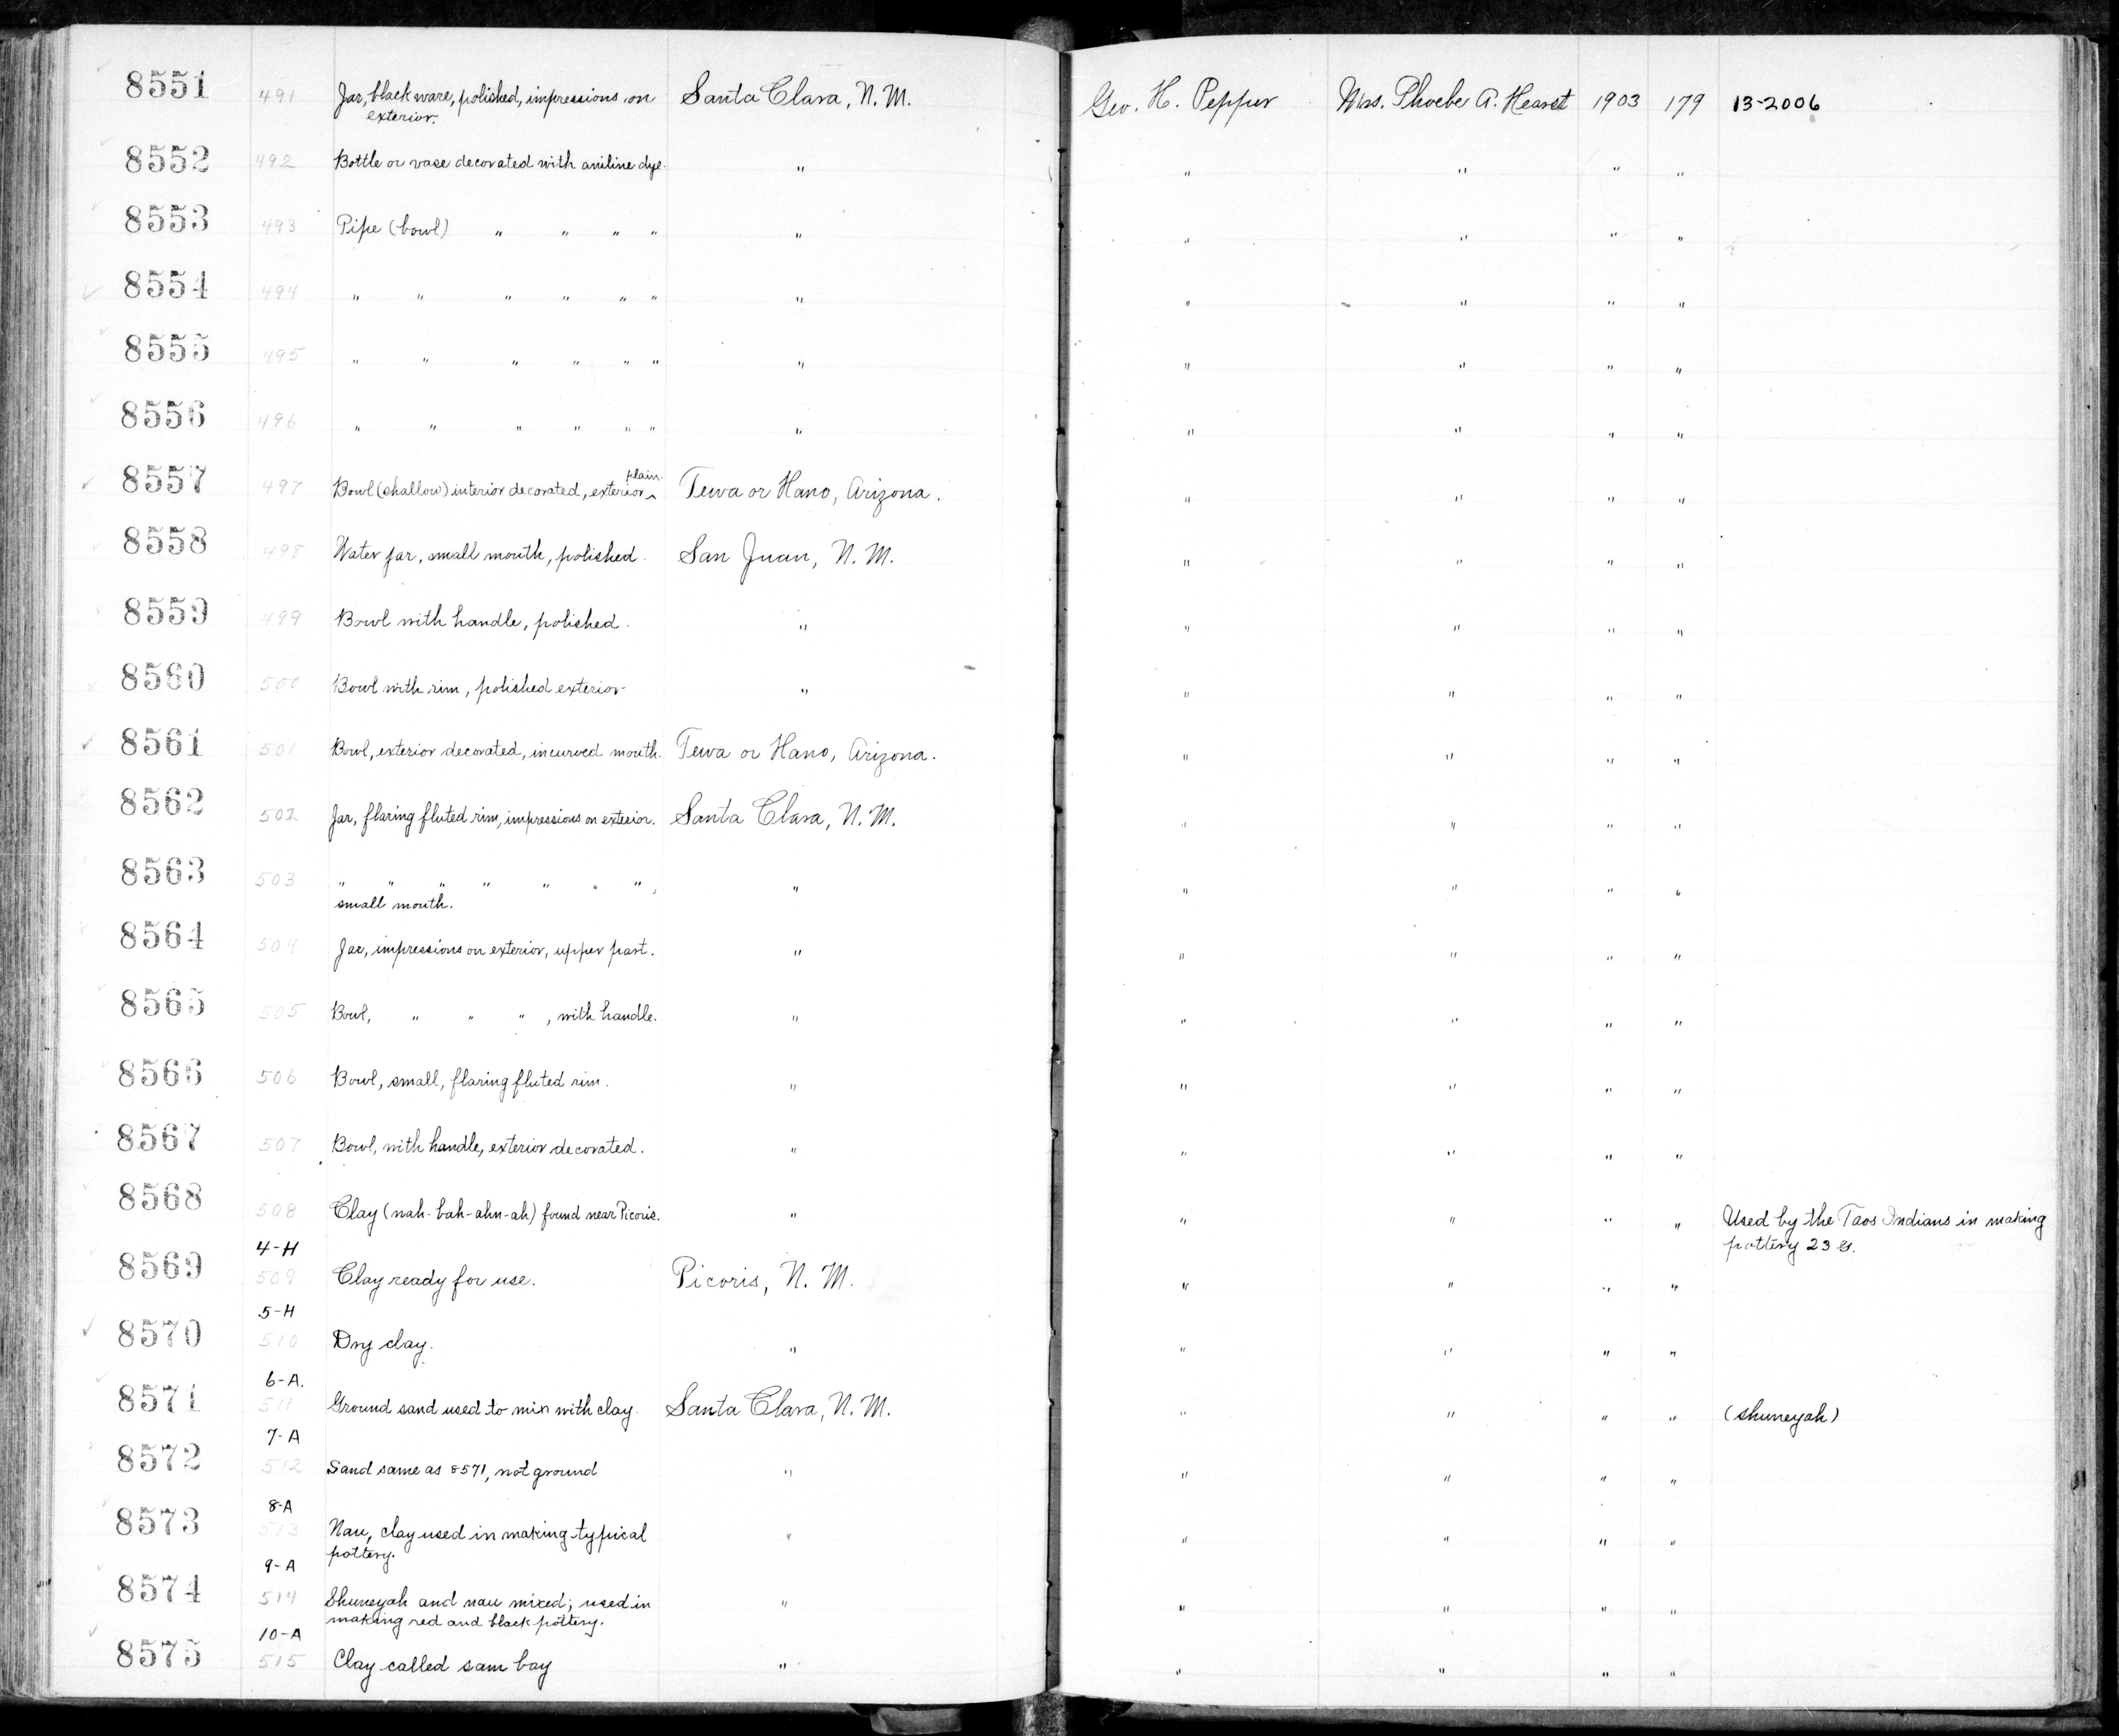 8551 491 Jar, black ware, polished, impressions on exterior. Santa Clara, N. M. Geo. H. Pepper Mrs. Phoebe A. Hearst 1903 179 13-2006
8552 492 Bottle or vase decorated with aniline dye. " " " " "
8553 493 Pipe (bowl) " " " " " " " " "
8554 494 " " " " " " " " " " "
8555 495 " " " " " " " " " " "
8556 496 " " " " " " " " " " "
8557 497 Bowl (shallow) interior decorated, exterior plain. Tewa or Hano, Arizona. " " " "
8558 498 Water jar, small mouth, polished. San Juan, N. M. " " " "
8559 499 Bowl with handle, polished. " " " " "
8560 500 Bowl with rim, polished exterior " " " " "
8561 501 Bowl, exterior decorated, incurved mouth. Tewa or Hano, Arizona. " " " "
8562 502 Jar, flaring fluted rim, impressions on exterior. Santa Clara, N. M. " " " "
8563 503 " " " " " " " , " " " " "
small mouth.
8564 504 Jar, impressions on exterior, upper part. " " " " "
8565 505 Bowl, " " " , with handle. " " " " "
8566 506 Bowl, small, flaring fluted rim. " " " " "
8567 507 Bowl, with handle, exterior decorated. " " " " "
8568 508 Clay (nah-bah-ahn-ah) found near Picoris. " " " " " Used by the Taos Indians in making
pottery 23
4-H
8569 509 Clay ready for use. Picoris, N. M. " " " "
5-H
8570 510 Dry clay. " " " " "
6-A.
8571 511 Ground sand used to mix with clay. Santa Clara, N. M. " " " " (shuneyah)
7-A
8572 512 Sand same as 8571, not ground " " " " "
8-A
8573 513 Nau, clay used in making typical " " " " "
pottery.
9-A
8574 514 Shuneyah and nau mixed; used in " " " " "
making red and black pottery.
10-A
8575 515 Clay called sam bay " " " " "